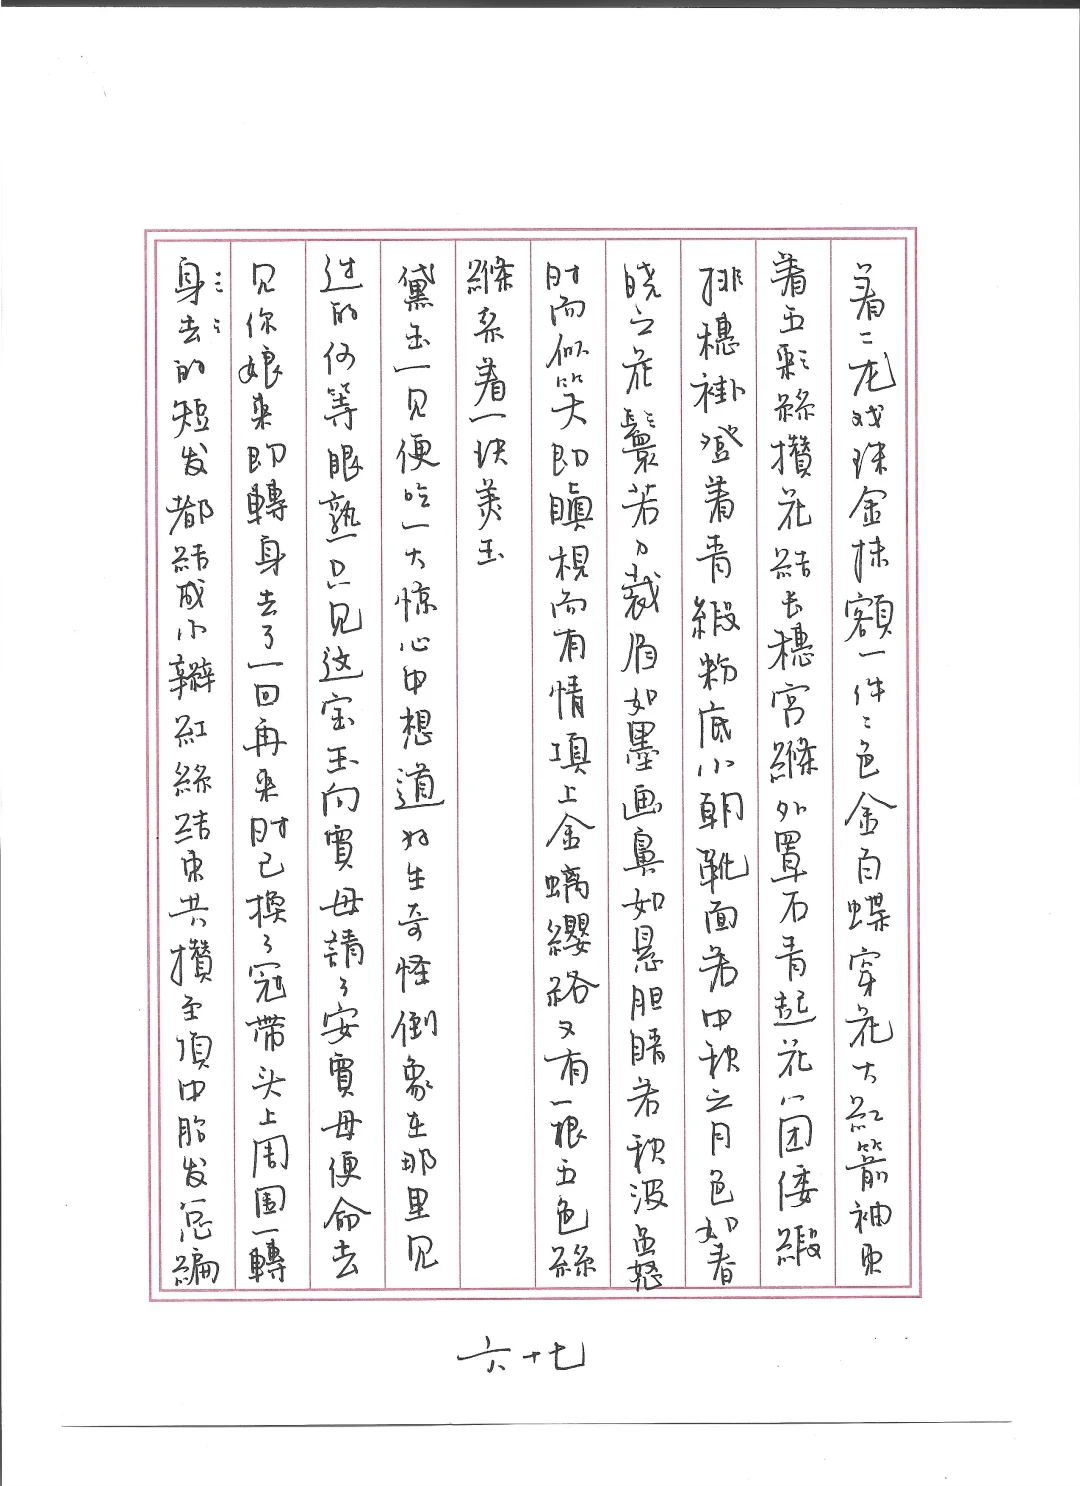 着二龙戏珠金抹额一件二色金百蝶穿花大紅箭袖束
着五彩絲攢花結长穗宫縧外罩石青起花八团倭緞
排穗褂登着青緞粉底小朝靴面若中秋之月色如春
晓之花鬓若刀裁眉如墨画鼻如悬胆睛若秋波虽怒
时而似笑即瞋視而有情項上金螭纓絡又有一根五色絲
縧系着一块美玉
黛玉一见便吃一大惊心中想道好生奇怪倒象在那里见
过的何等眼熟只见这宝玉向賈母請了安賈母便命去
见你娘来即轉身去了一回再来时已换了冠带头上周围一轉
身去的短发都結成小辮紅絲結束共攢至頂中胎发总編
六十七